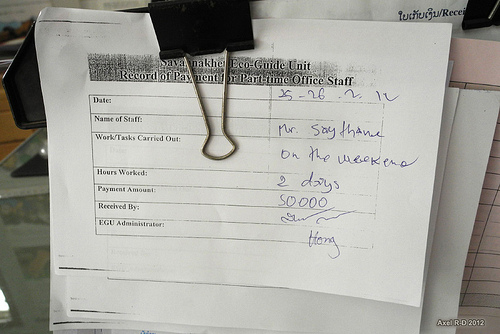 ใบเก็บเงิน/Recei
Savannakhet Eco-Guide Unit
Record of Payment for Part-time Office Staff
Date: 25-26-2-12
Name of Staff: Mr. Saythane
Work/Tasks Carried Out: on the weekend
Hours Worked: 2 days
Payment Amount: 50000
Received By:
EGU Administrator: Hong
Axel R-D 2012